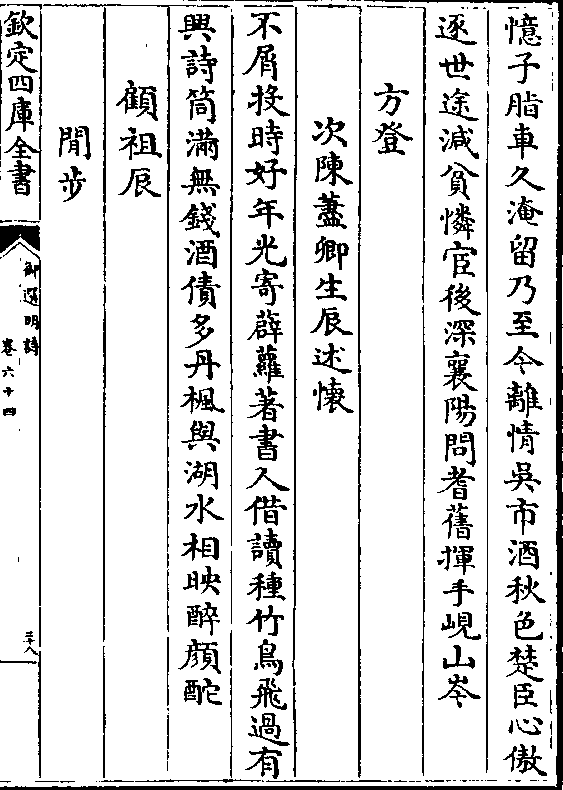 憶子脂車久淹留乃至今離情吳市酒秋色楚臣心傲
逐世途減貧憐宦後深襄陽問耆舊揮手峴山岑
方登
次陳藎卿生辰述懷
不屑投時好年光寄薜蘿著書人借讀種竹鳥飛過有
興詩筒滿無錢酒債多丹楓與湖水相映醉顔酡
顧祖辰
閒步
欽定四庫全書
御選明詩
卷六十四
三十八